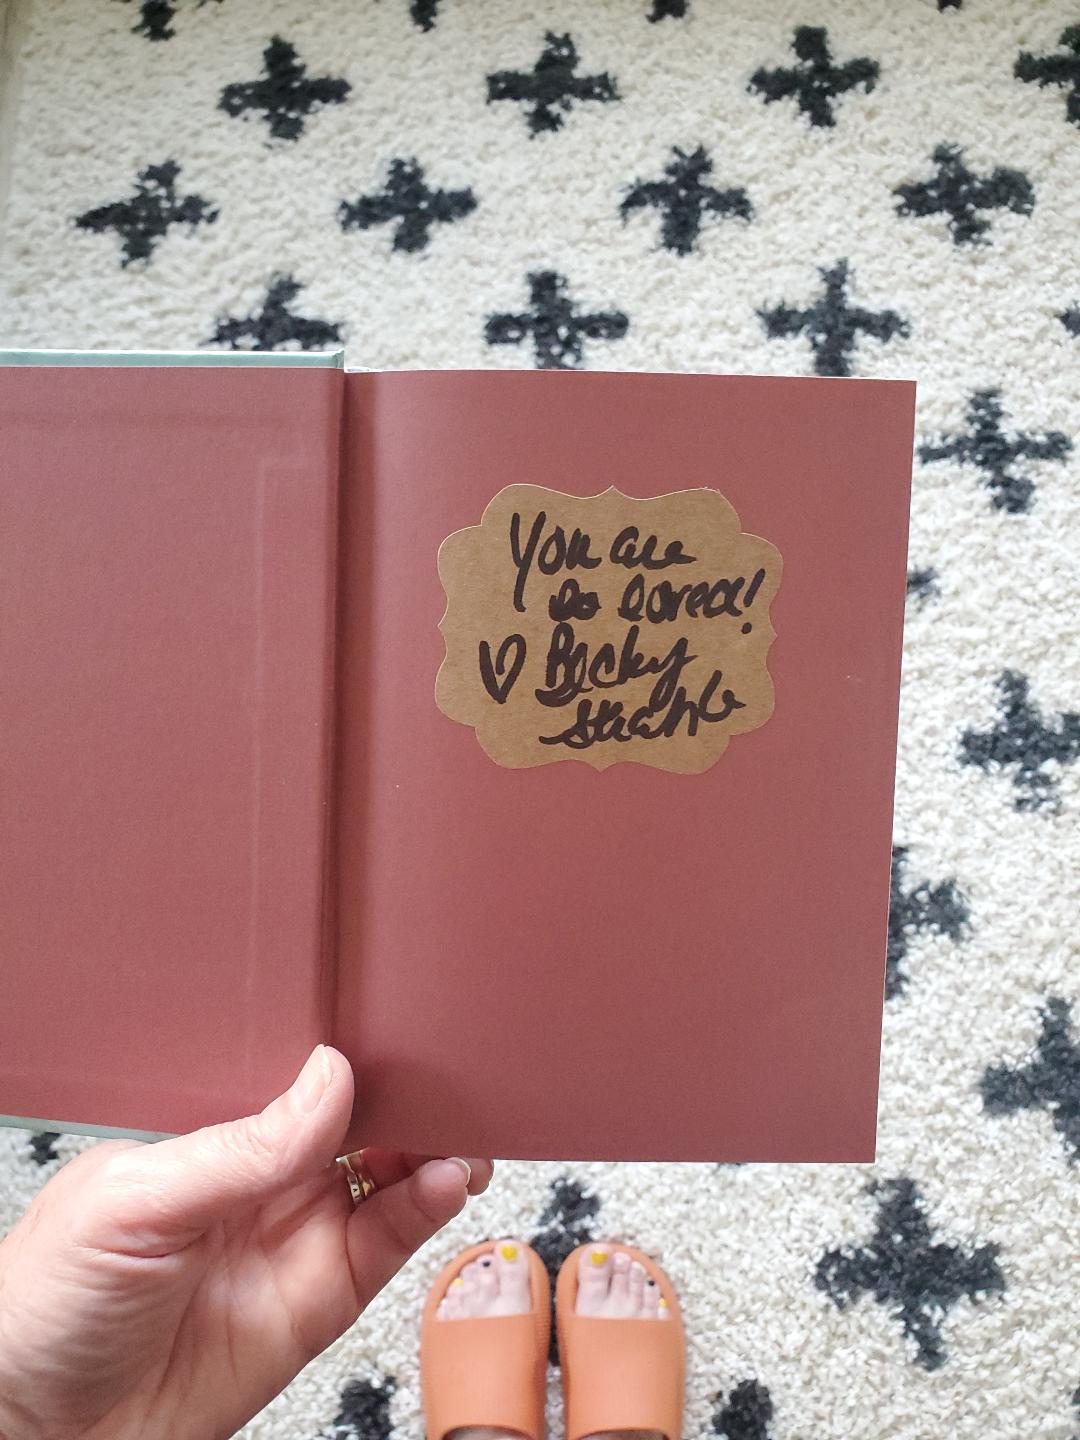 You are
so loved!
♡ Becky